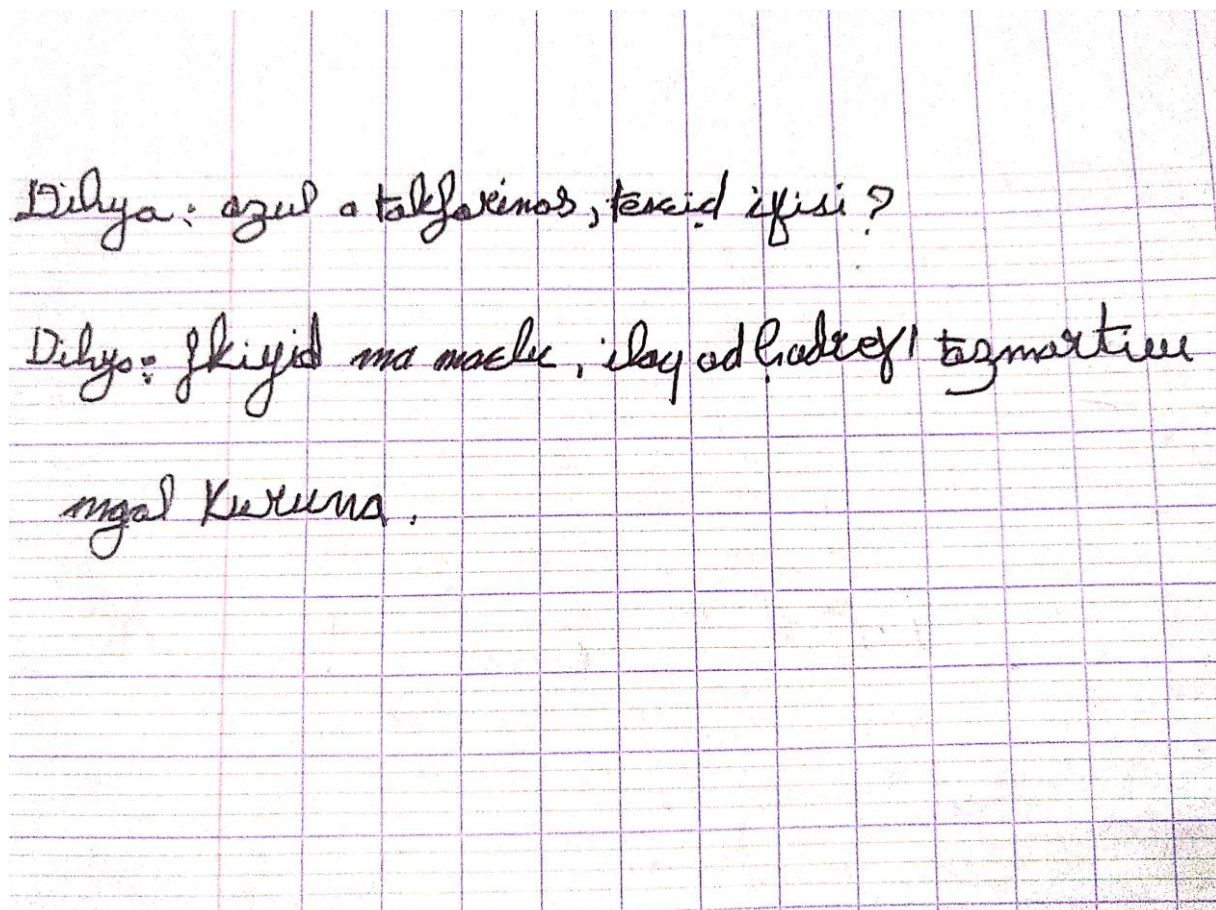 Dihya: azul a takfarinas, tesεid ifisi ?
Dihya: fkiyid ma maεlic, ilaq ad ḥadreɣ f tazmartiw
mgal Kuruna.